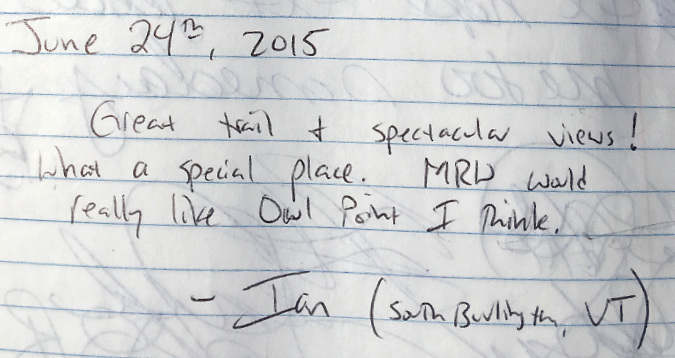 June 24th, 2015
Great trail + spectacular views!
What a special place. MRW would
really like Owl Point I think.
- Ian (South Burlington, VT)